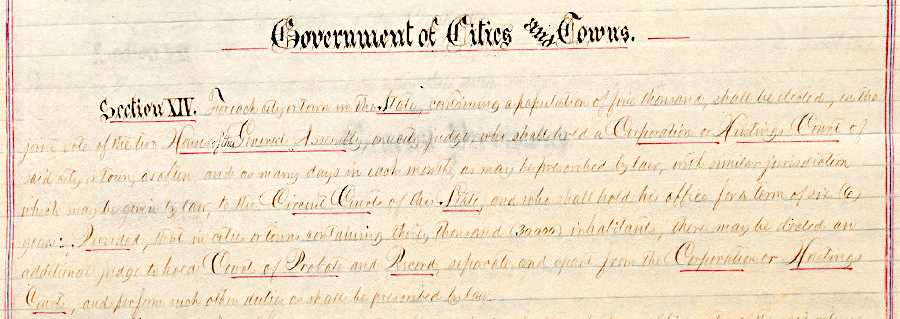 Government of Cities and Towns.
Section XIV. For each city or town in the State, containing a population of five thousand, shall be elected, on the
joint vote of the two Houses of the General Assembly, one city judge, who shall hold a Corporation or Hustings Court of
said city or town, as often, and as many days in each month, as may be prescribed by law, with similar jurisdiction
which may be given by law, to the Circuit Courts of this State, and who shall hold his office for a term of six (6)
years: Provided, that in cities or towns containing thirty thousand (30,000) inhabitants, there may be elected an
additional judge to hold Courts of Probate and Record, separate and apart from the Corporation or Hustings
Courts, and perform such other duties as shall be prescribed by law.